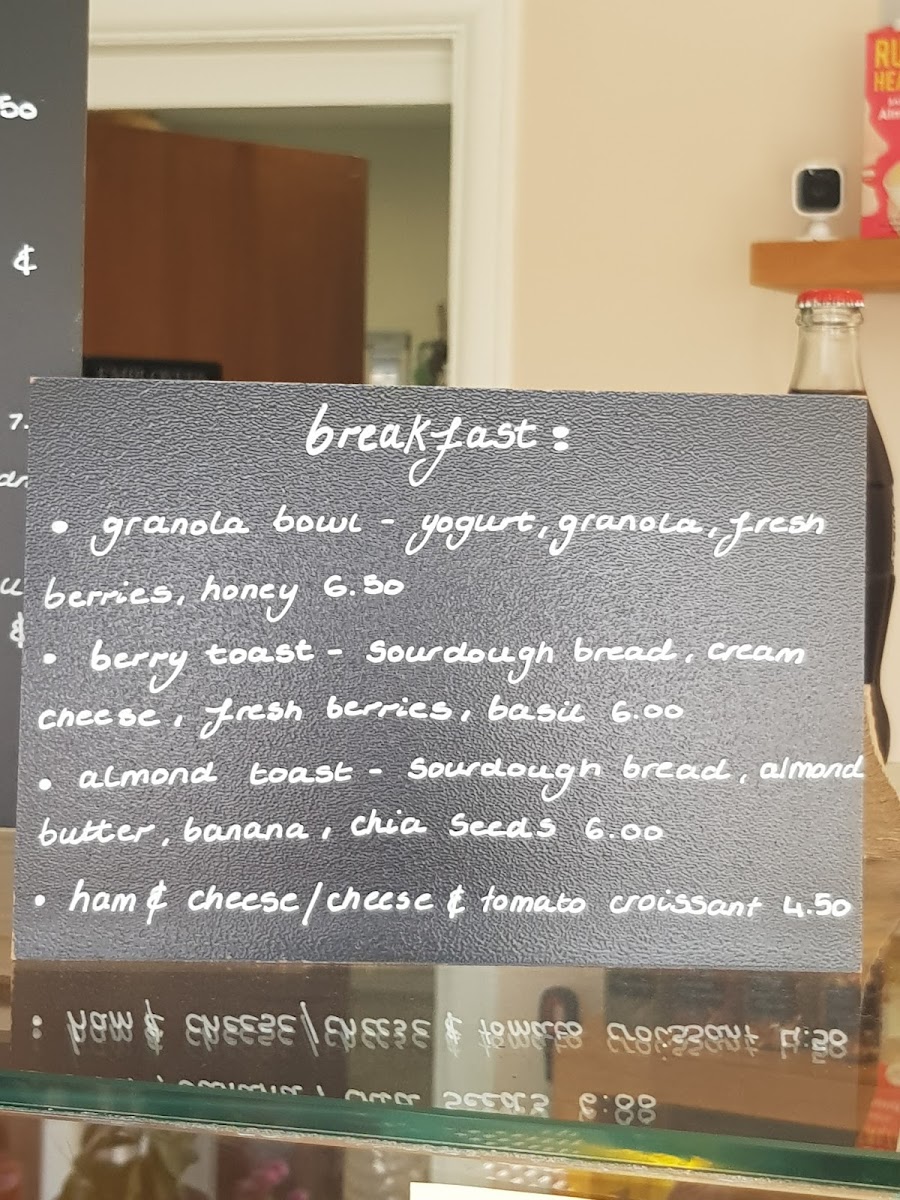 50
&
7.
breakfast:
• granola bowl - yogurt, granola, fresh
berries, honey 6.50
• berry toast - sourdough bread, cream
cheese, fresh berries, basil 6.00
• almond toast - sourdough bread, almond
butter, banana, chia seeds 6.00
• ham & cheese/cheese & tomato croissant 4.50